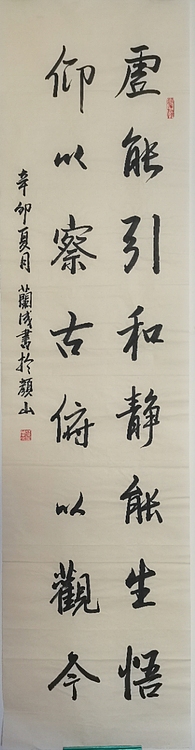 虚能引和静能生悟
仰以察古俯以觀今
辛卯夏月蘭成書於顔山